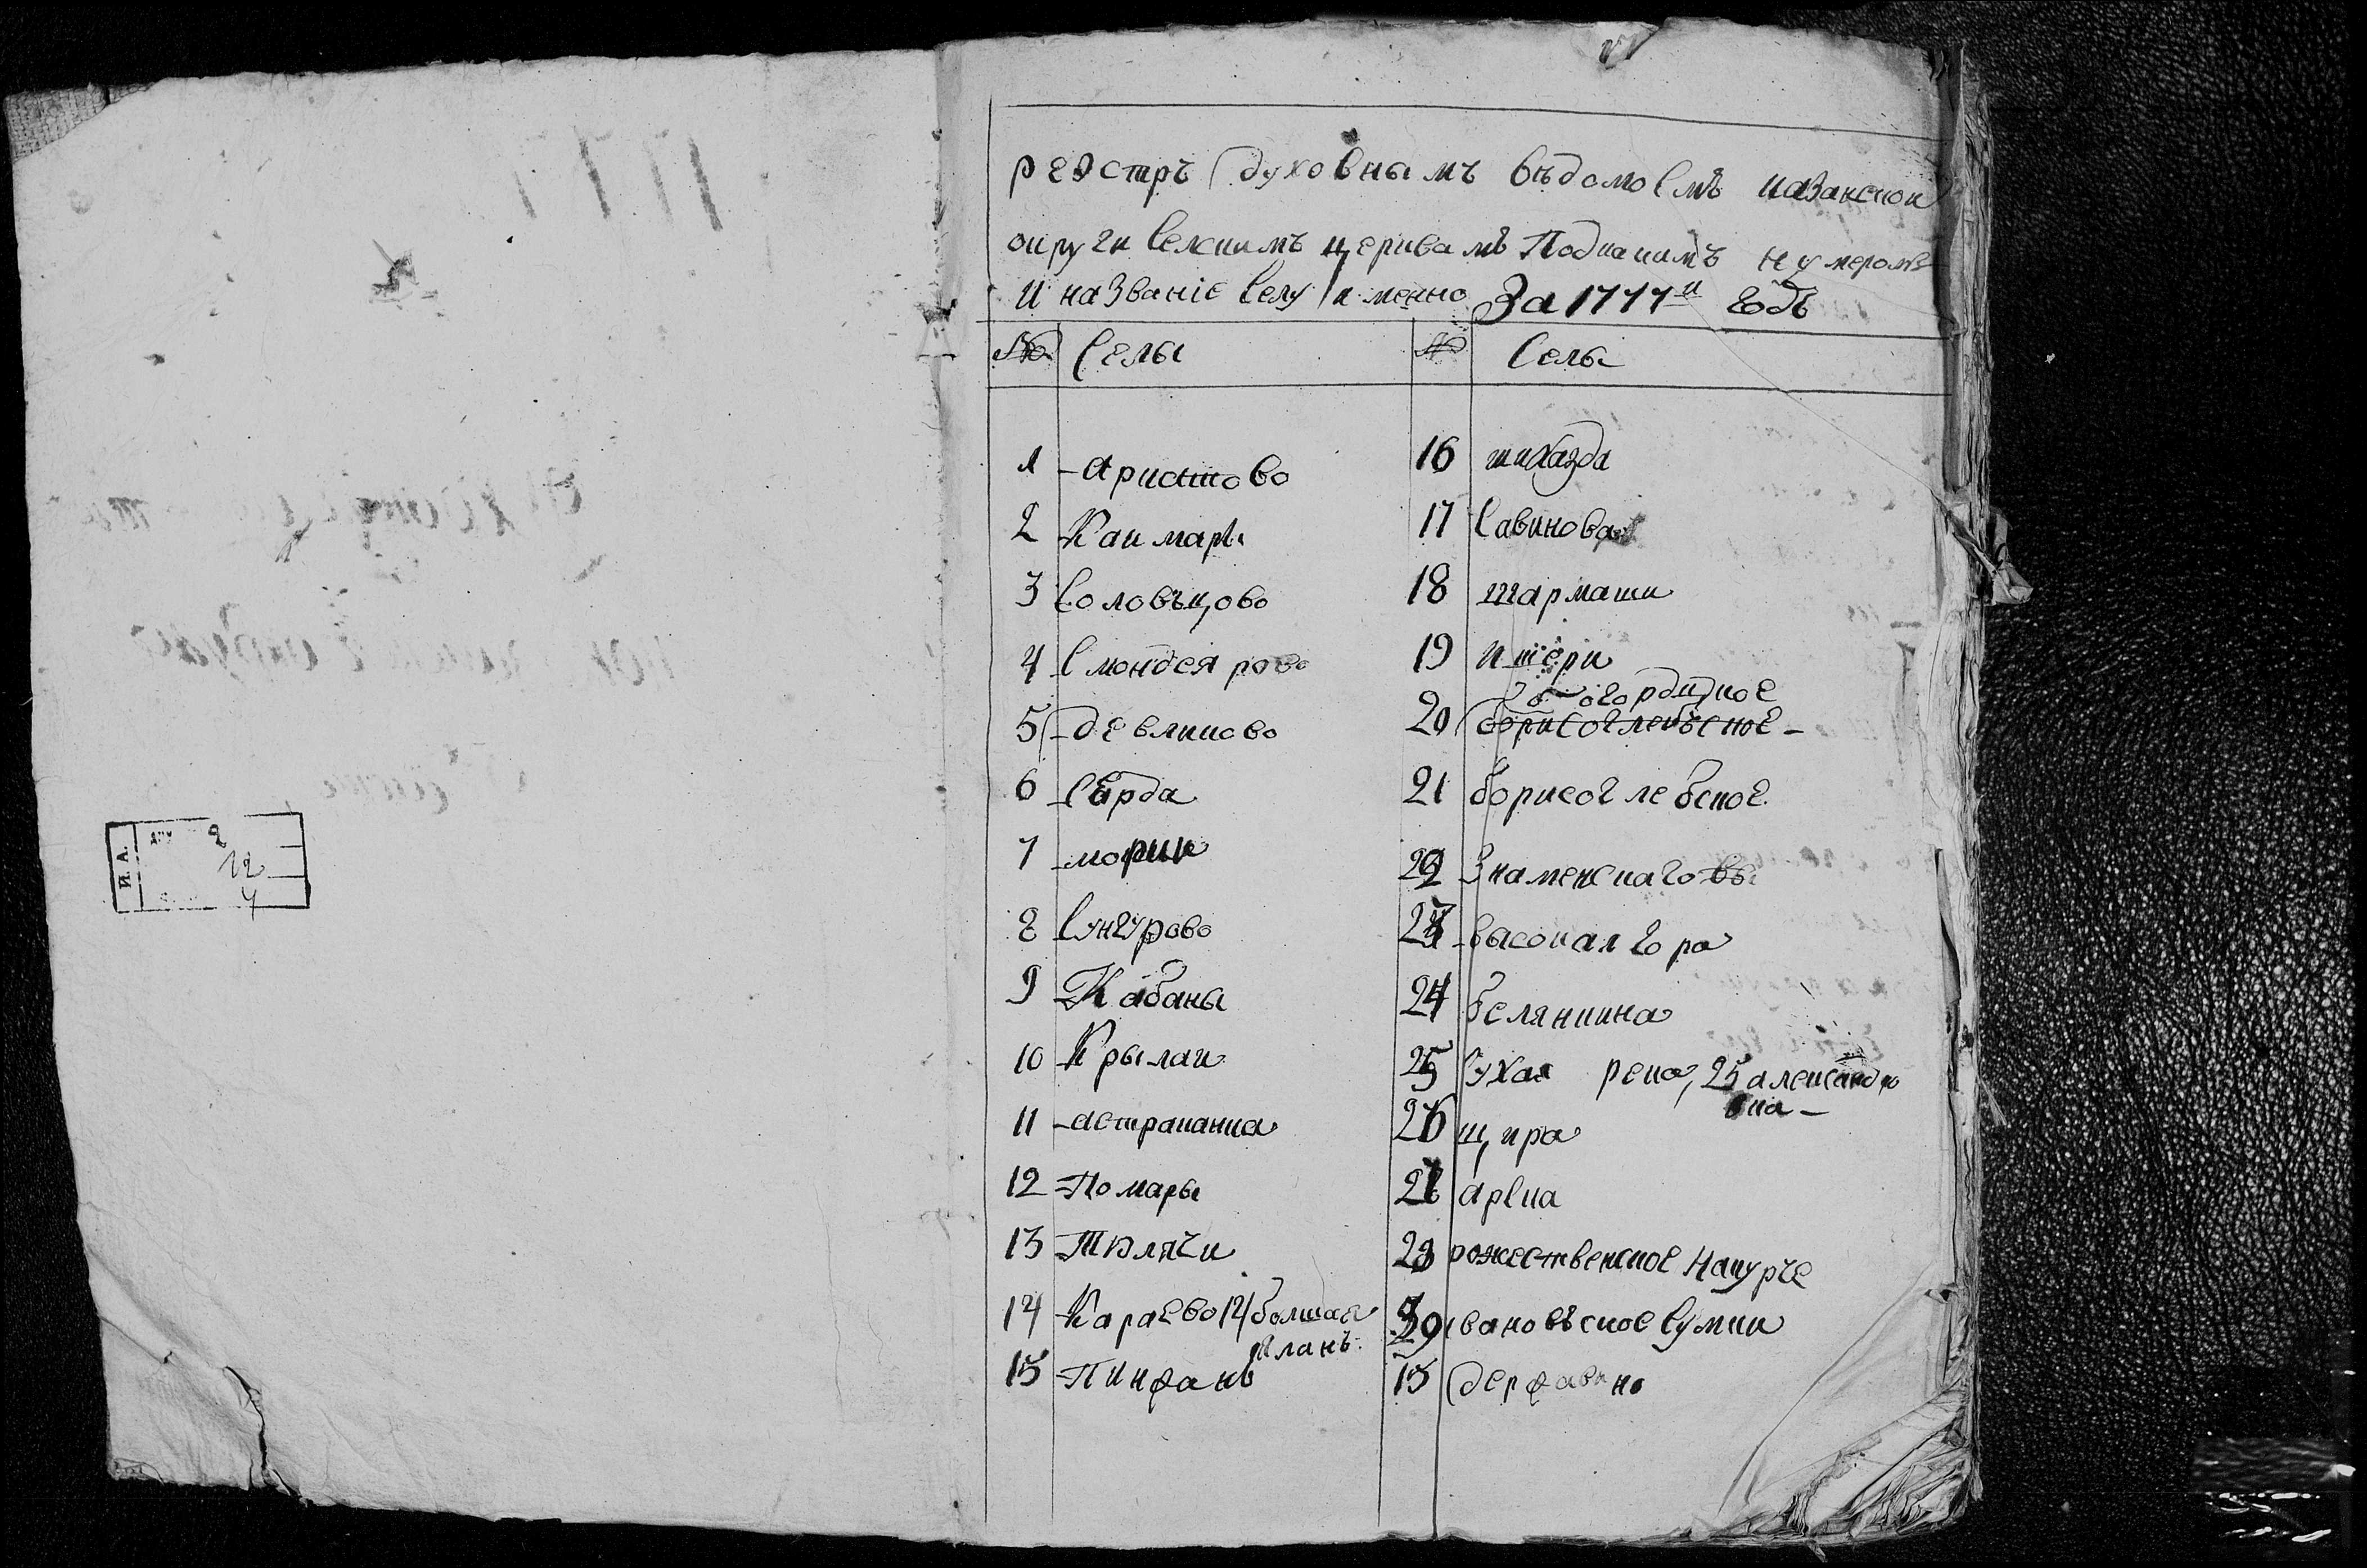 реэстръ духовнымъ вѣдомосмъ казанской
округи селскимъ церквамъ Подкакимъ нумеромъ
и названіе селу именно За 1777й годъ
№ Селы № Селы
1 Аристово 16 шихазда
2 Каимары 17 Савинова
3 Соловъцово 18 шармаши
4 Смондеярово 19 ишери
5 девликово 20 богородицкое
борисоглебъское
6 Сарда 21 борисоглебское
7 морки 22 Знаменскаго
8 Сунгурово 23 высокая гора
9 Кабаны 24 белянкина
10 Крылаи 25 Сухая река, 25 александро
вка
11 астраханка 26 щира
12 Помары 27 арска
13 Тюлячи 28 рожественское накурче
14 Караево 14 болшая
елань
29 ивановъское Сумки
15 Пинжань 15 державино
И. А.
2
12
4